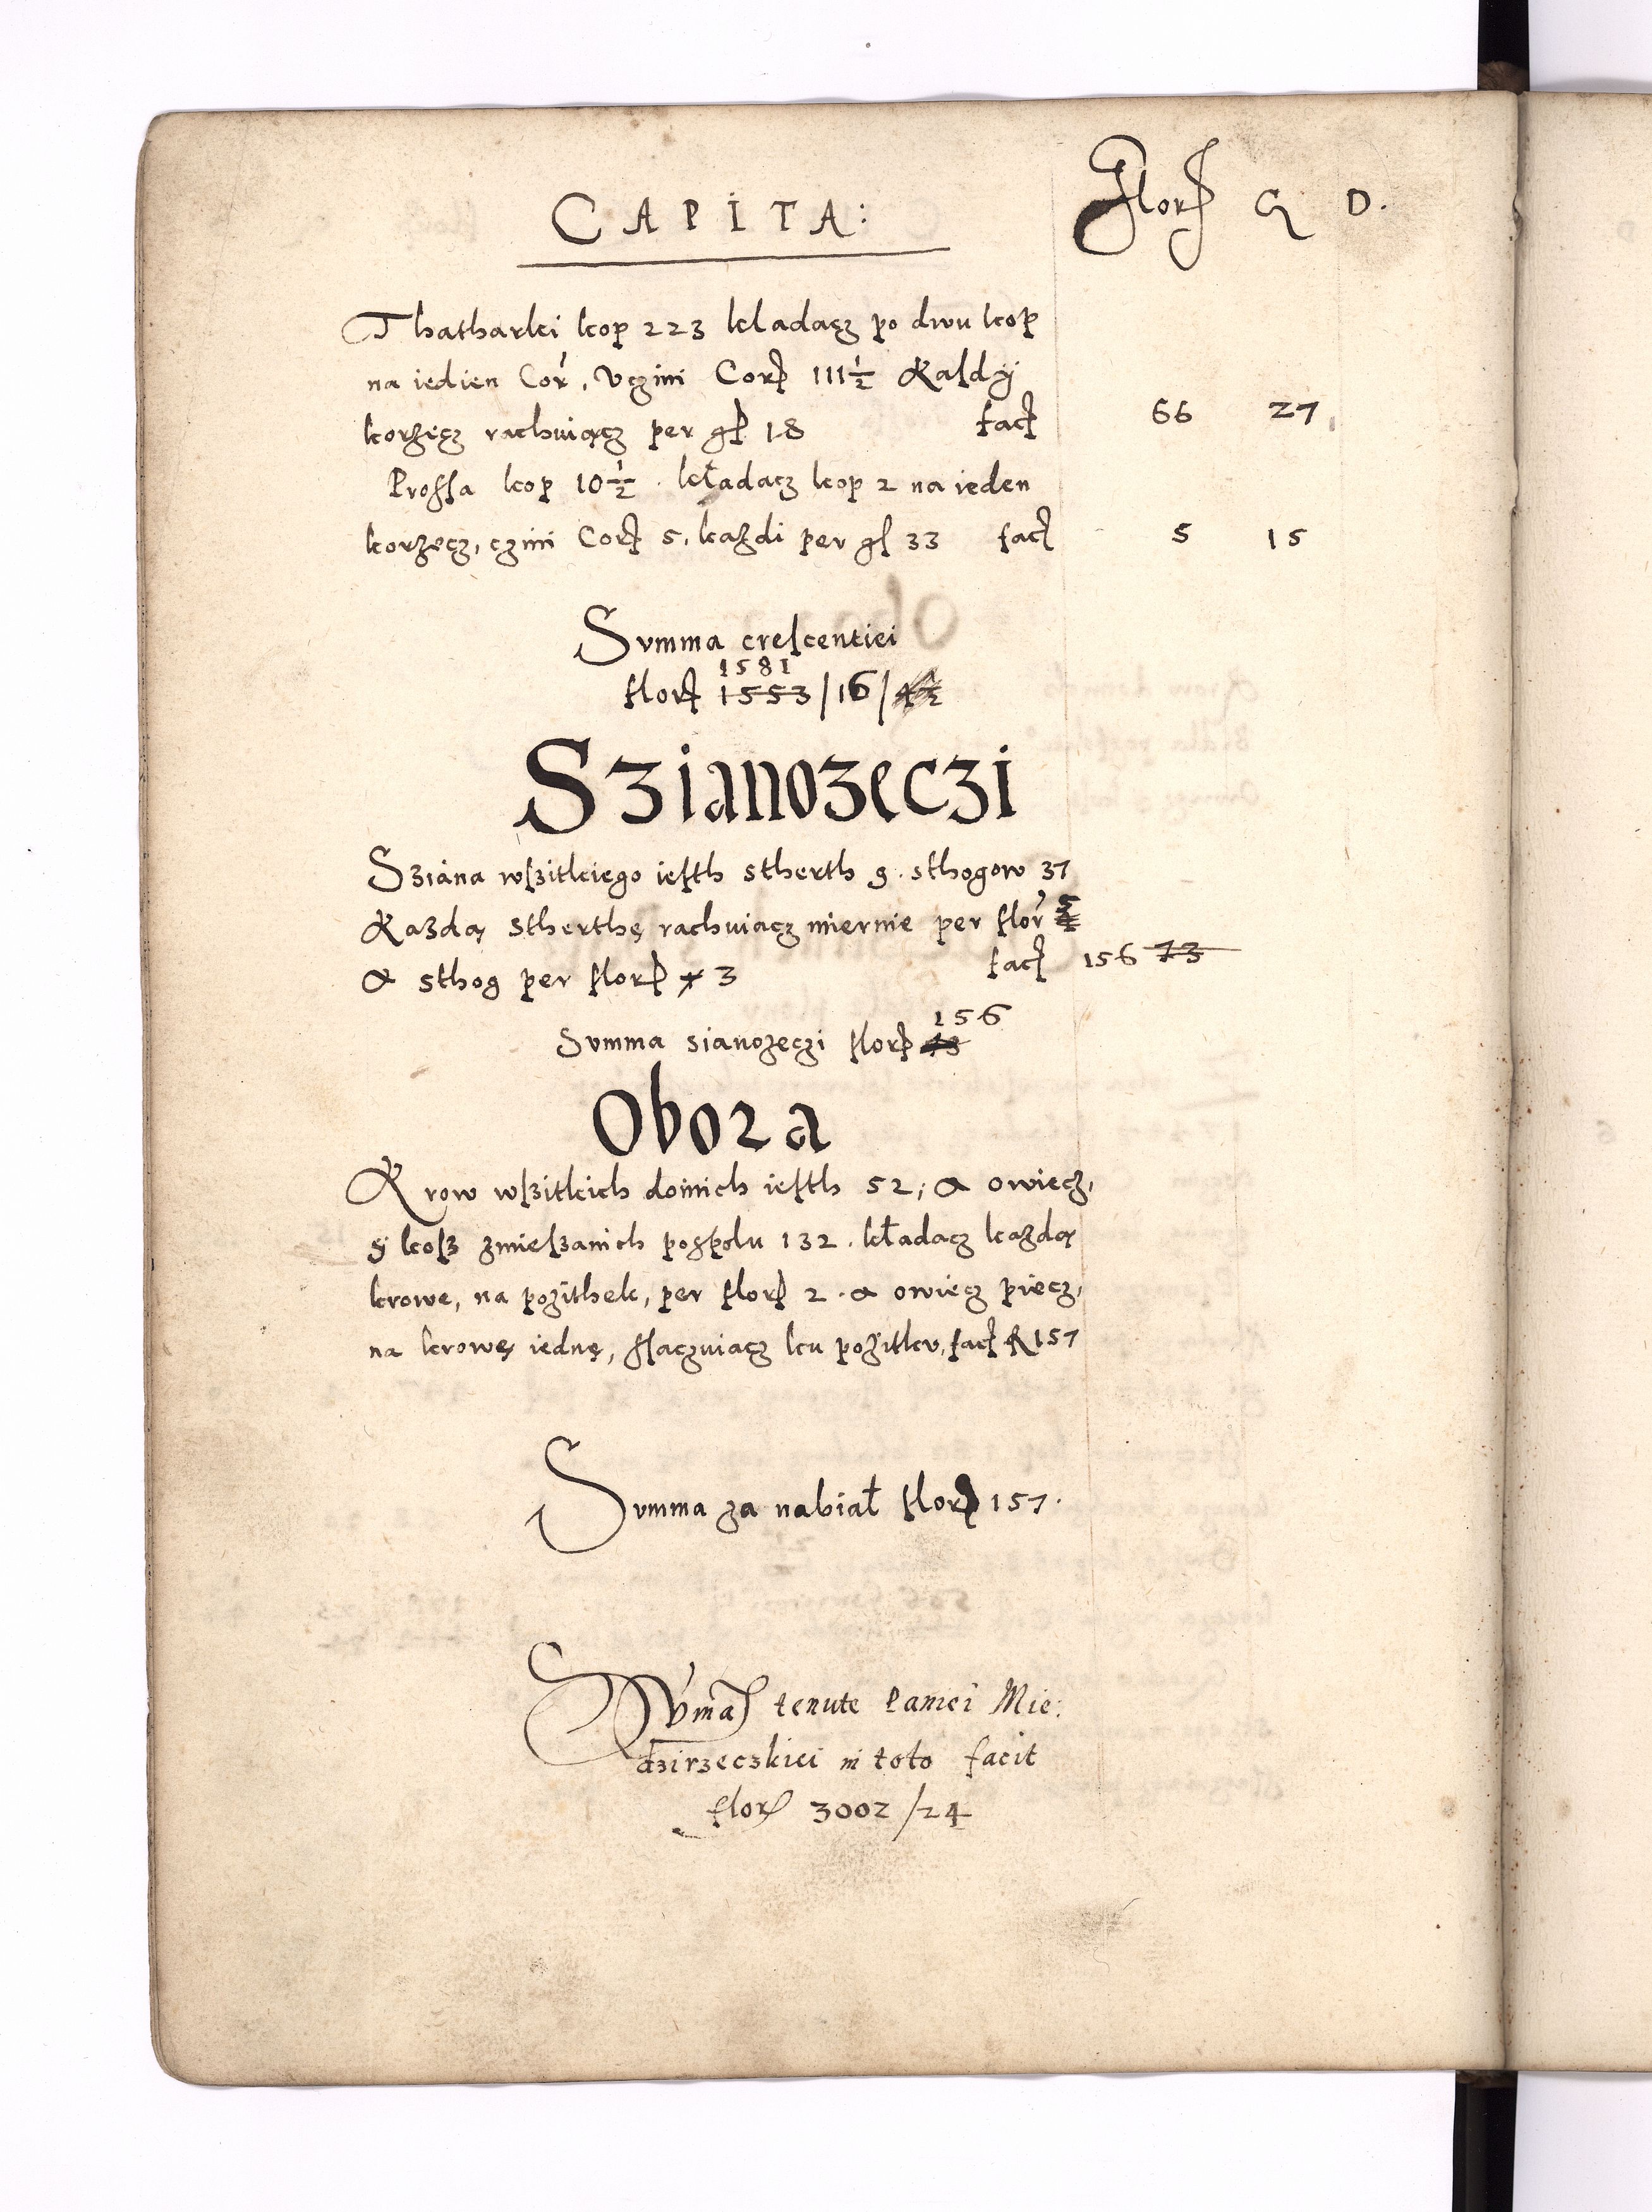 CAPITA: Flor G D.
Thatharki kop 223 kladącz po dwu kop
na iedien Cor, Vczini Cor 111½ Kaſdÿ
korzęcz rachuiącz per gſ 18 fac 66 27
Proſſa kop 10½. kładacz kop 2 na ieden
korzęcz, czini Cor 5, każdi per gſ 33 fac 5 15
Svmma creſcentiei
1581
flor 1553/16/
Szianozeczi
Sziana wſzitkiego ieſth stherth 9. sthogow 37
Każdą stherthę rachuiacz miernie per flor 5
A sthog per flor 3 fac 156 73
156
Svmma sianozeczi flor 73
Obora
Krow wſzitkich doinich ieſth 52, A owiecz,
ÿ koſz zmieſzanich poſpolu 132. kładacz każdą
krowe, na pozithek, per flor 2. A owiecz piecz,
na krowę iednę, ſſaczuiącz ku pożitkv, fac fl 157
Svmma za nabiał flor 157.
Svma tenute Paniei Mie:
dzirzeczkiei in toto facit
flor 3002/24